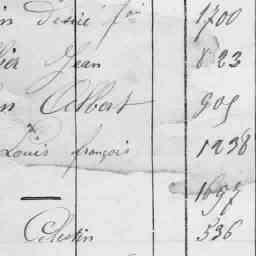 in Désiré fois 1700
ier Jean 823
n Albert 909
Louis françois 1238
— 1697
Célestin 536